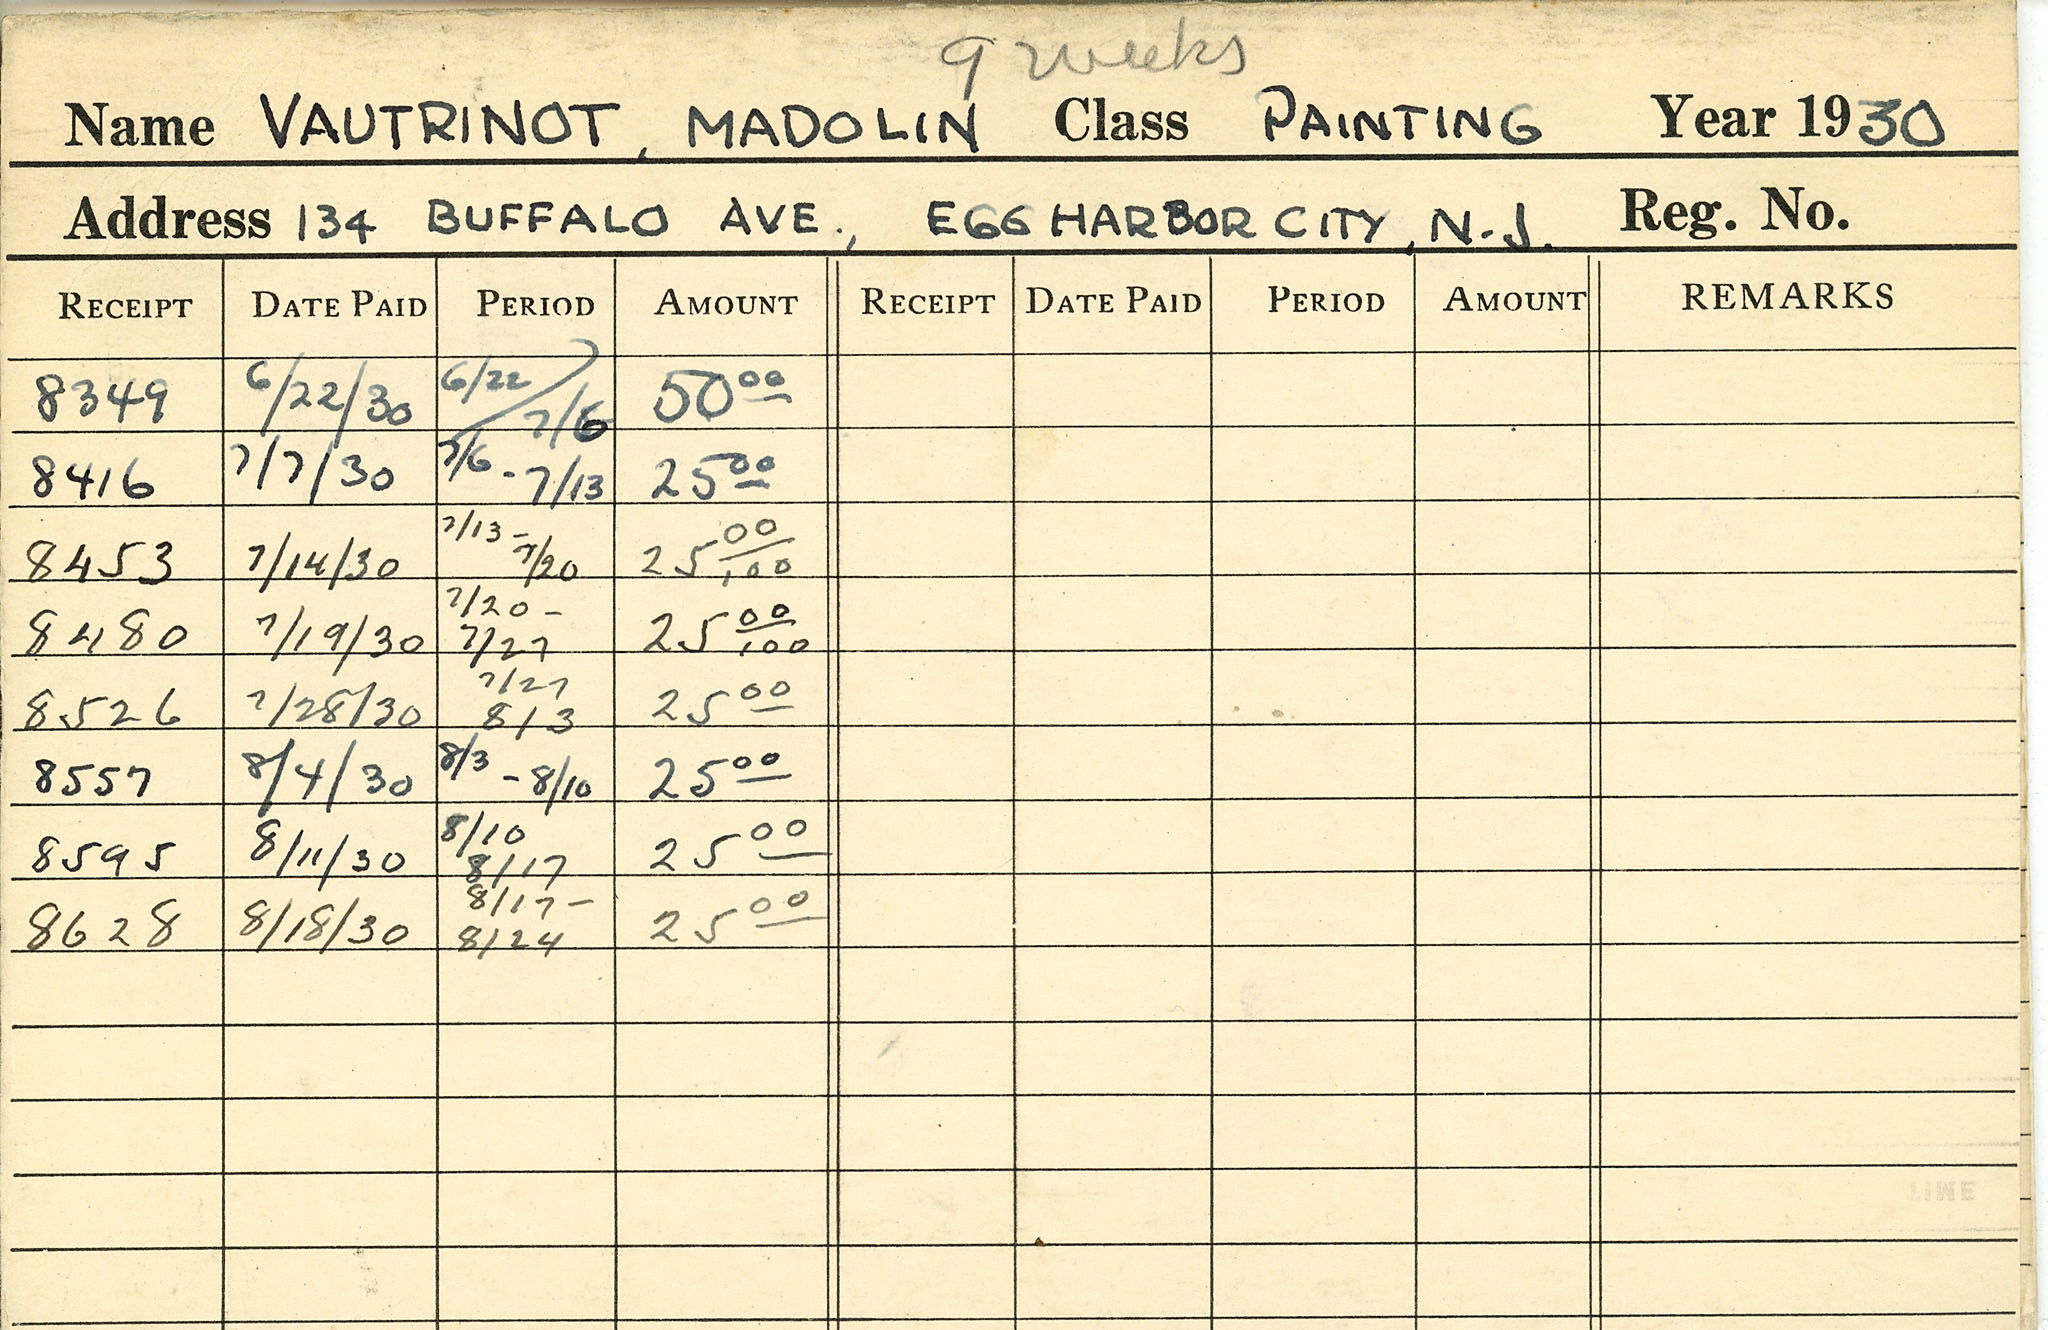 9 weeks
Name VAUTRINOT, MADOLIN Class PAINTING Year 1930
Address 134 BUFFALO AVE., EGG HARBOR CITY, N.J. Reg. No.
RECEIPT DATE PAID PERIOD AMOUNT RECEIPT DATE PAID PERIOD AMOUNT REMARKS
8349 6/22/30 6/22 / 7/6 50 00
8416 7/7/30 7/6 - 7/13 25 00
8453 7/14/30 7/13 - 7/20 25 00/100
8480 7/19/30 7/20 - 7/27 25 00/100
8526 7/28/30 7/27 8/3 25 00
8557 8/4/30 8/3 - 8/10 25 00
8595 8/11/30 8/10 8/17 25 00
8628 8/18/30 8/17 - 8/24 25 00